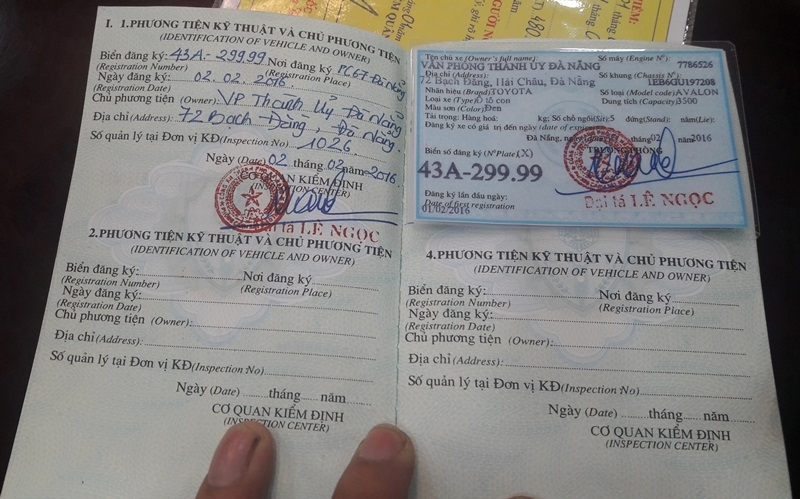 I. 1.PHƯƠNG TIỆN KỸ THUẬT VÀ CHỦ PHƯƠNG TIỆN
(IDENTIFICATION OF VEHICLE AND OWNER)
Biển đăng ký: 43A-299.99 Nơi đăng ký PC67 Đà Nẵng
(Registration Number) (Registration Place)
Ngày đăng ký: 02.02.2016
(Registration Date)
Chủ phương tiện (Owner): VP Thành Ủy Đà Nẵng
Địa chỉ (Address): 72 Bạch Đằng, Đà Nẵng
Số quản lý tại Đơn vị KĐ(Inspection No) 1026
Ngày (Date) 02 tháng 02 năm 2016
CƠ QUAN KIỂM ĐỊNH
Đại tá LÊ NGỌC
2.PHƯƠNG TIỆN KỸ THUẬT VÀ CHỦ PHƯƠNG TIỆN
(IDENTIFICATION OF VEHICLE AND OWNER)
Biển đăng ký: Nơi đăng ký
(Registration Number) (Registration Place)
Ngày đăng ký:
(Registration Date)
Chủ phương tiện (Owner):
Địa chỉ (Address):
Số quản lý tại Đơn vị KĐ(Inspection No)
Ngày (Date) tháng năm
CƠ QUAN KIỂM ĐỊNH
(INSPECTION CENTER)
Tên chủ xe (Owner's full name): Số máy (Engine Nº): 7786526
VĂN PHÒNG THÀNH ỦY ĐÀ NẴNG
Địa chỉ (Address): Số khung (Chassis Nº):
72 Bạch Đằng, Hải Châu, Đà Nẵng 1EB6GU197208
Nhãn hiệu (Brand): TOYOTA Số loại (Model code): AVALON
Loại xe (Type): Ô tô con Dung tích (Capacity): 3500
Màu sơn (Color): Đen
Tải trọng: Hàng hoá: kg; Số chỗ ngồi(Sit): 5 đứng(Stand): nằm(Lie):
Đăng ký xe có giá trị đến ngày (date of
Đà Nẵng, ngày 02 2016
Biển số đăng ký (Nº Plate) (X) TRƯỞNG PHÒNG
43A-299.99
Đăng ký lần đầu ngày:
Date of first registration
01/02/2016
Đại tá LÊ NGỌC
4.PHƯƠNG TIỆN KỸ THUẬT VÀ CHỦ PHƯƠNG TIỆN
(IDENTIFICATION OF VEHICLE AND OWNER)
Biển đăng ký: Nơi đăng ký
(Registration Number) (Registration Place)
Ngày đăng ký:
(Registration Date)
Chủ phương tiện (Owner):
Địa chỉ (Address):
Số quản lý tại Đơn vị KĐ(Inspection No)
Ngày (Date) tháng năm
CƠ QUAN KIỂM ĐỊNH
(INSPECTION CENTER)